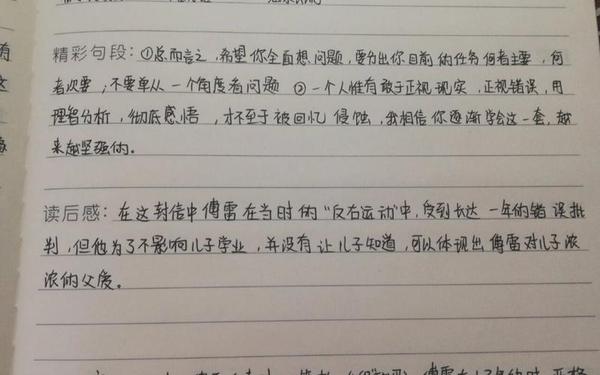 精彩句段：①总而言之，希望你全面想问题，要分出你目前的任务何者主要，何
者次要；不要单从一个角度看问题 ②一个人惟有敢于正视现实，正视错误，用
理智分析，彻底感悟，才不至于被回忆侵蚀，我相信你逐渐学会这一套，越
来越坚强的。
读后感：在这封信中傅雷在当时的"反右运动"中，受到长达一年的错误批
判，但他为了不影响儿子学业，并没有让儿子知道，可以体现出傅雷对儿子浓
浓的父爱。